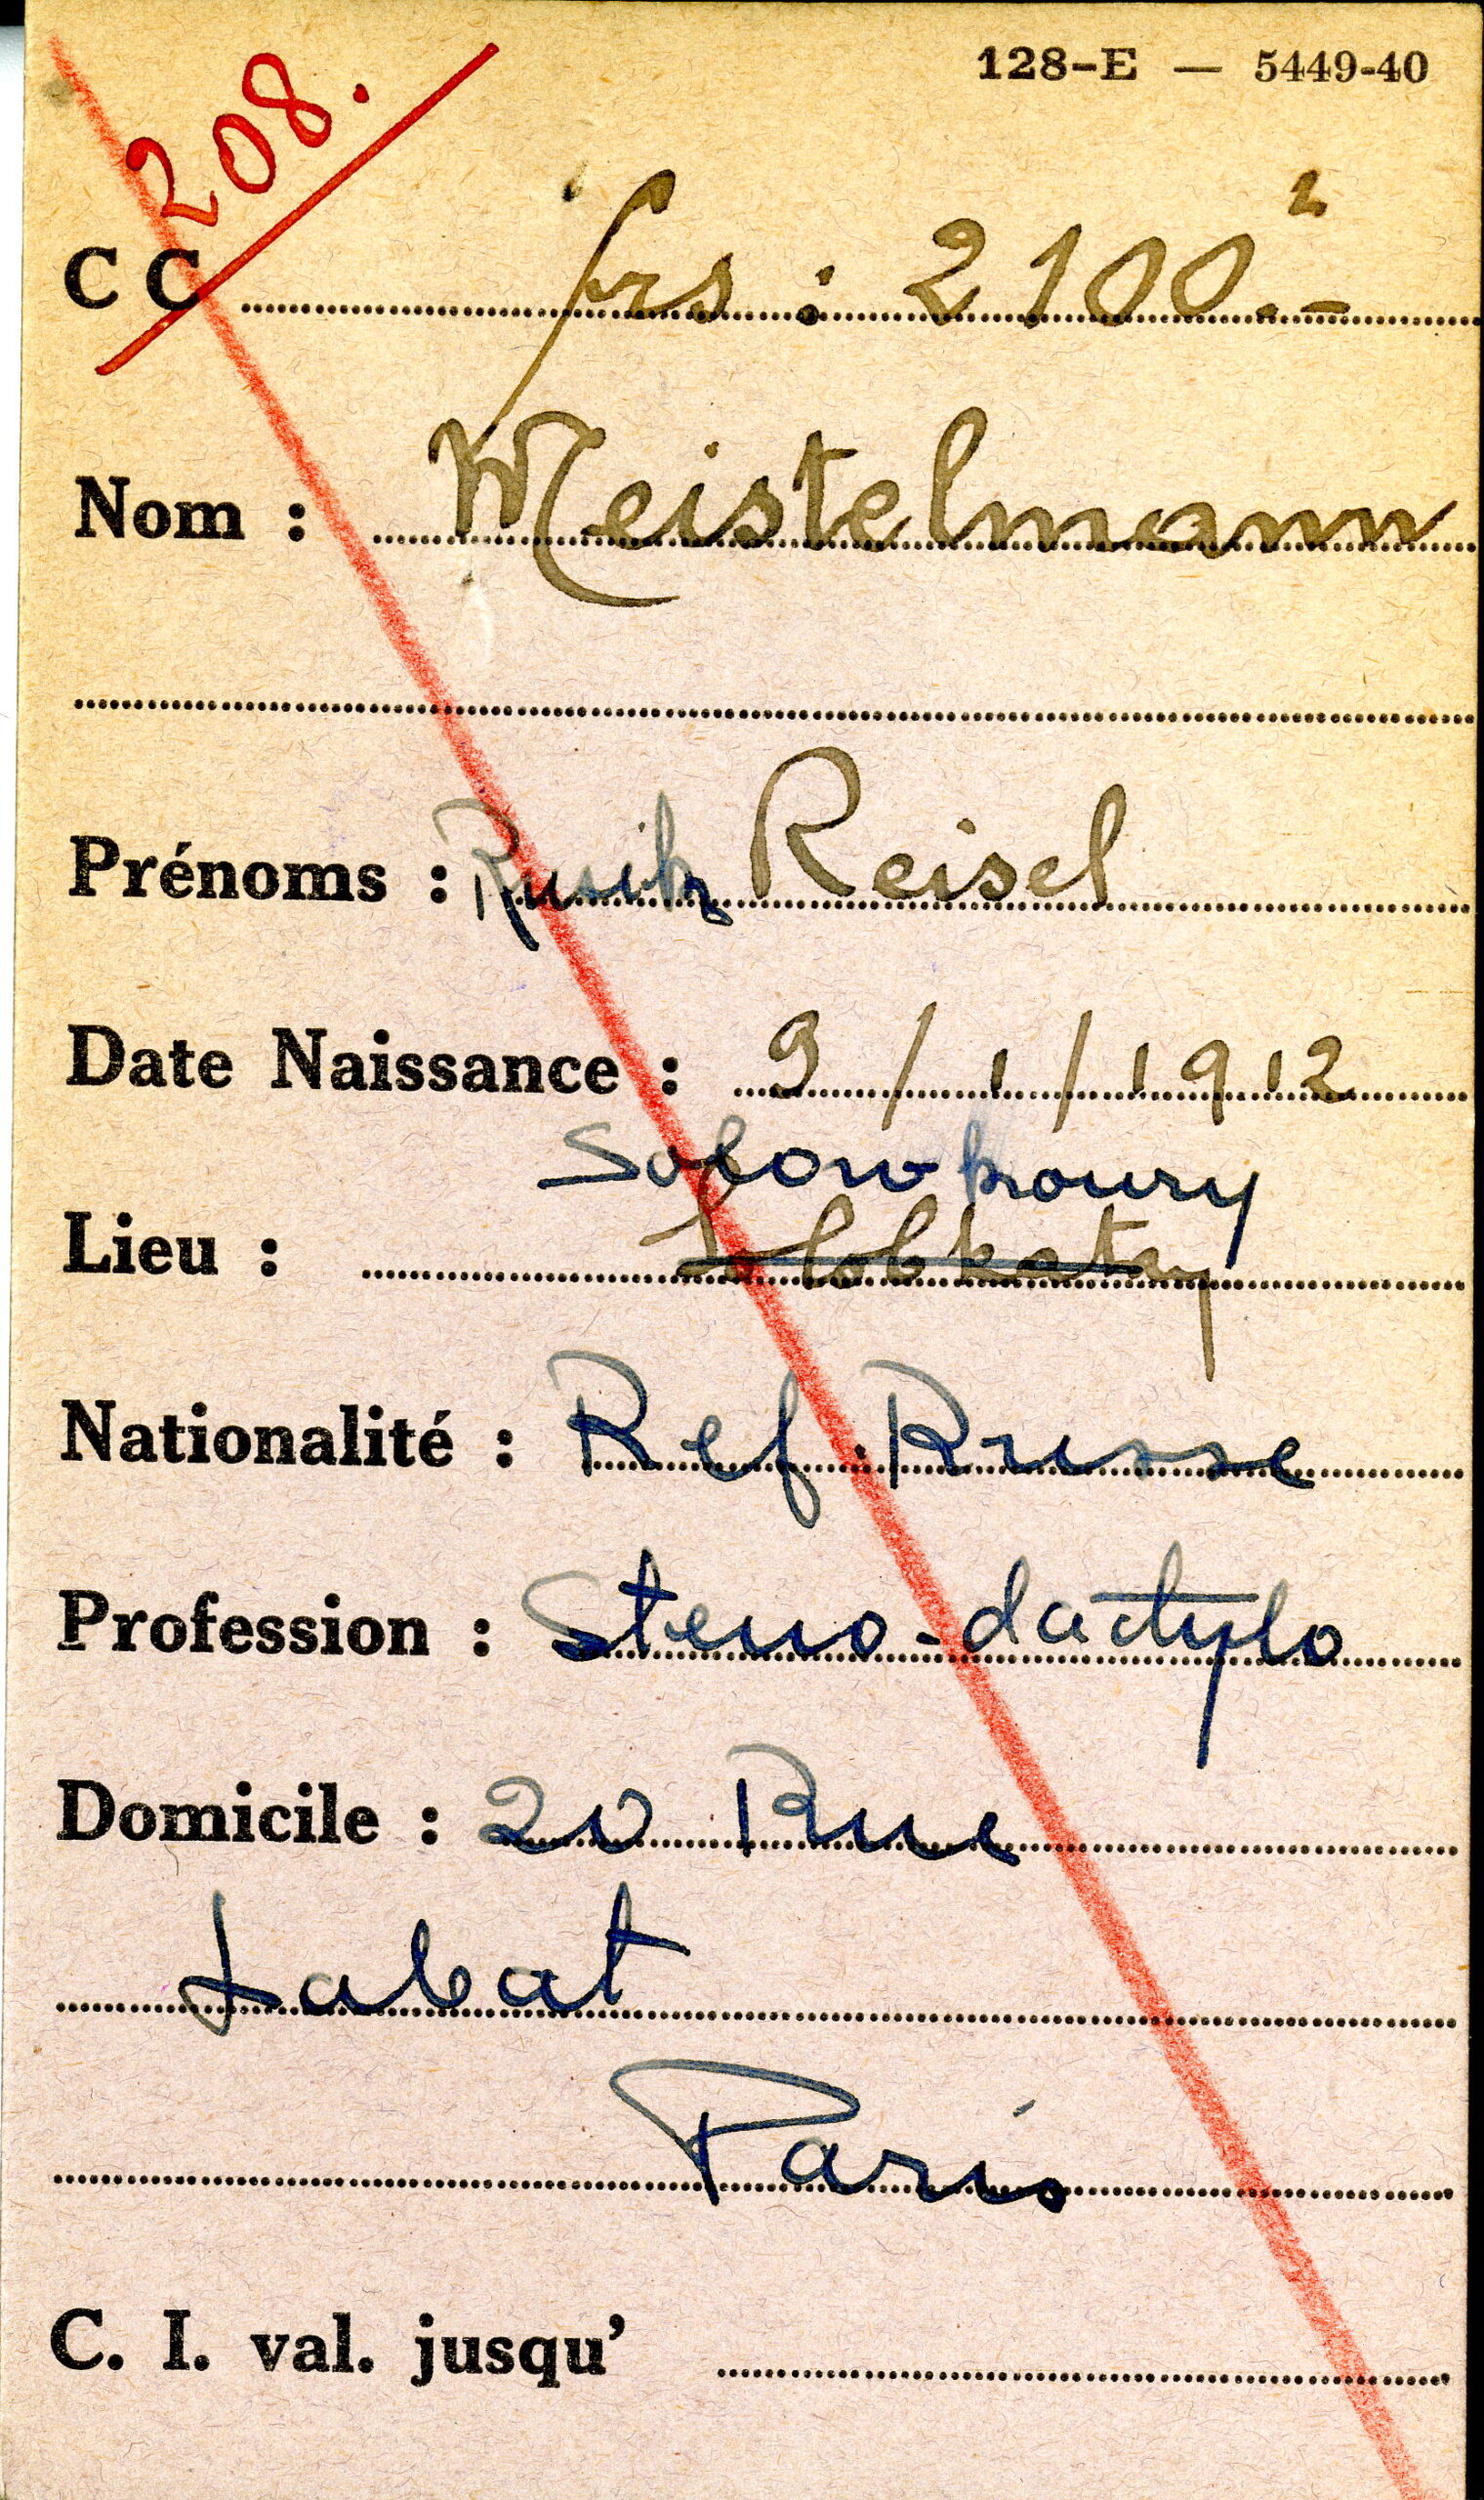 128-E — 5449-40
208.
CC frs : 2100.-
Nom : Meistelmann
Prénoms : Rusik Reisel
Date Naissance : 9/1/1912
Lieu :
Nationalité : Ref. Russe
Profession : Steno-dactylo
Domicile : 20 Rue
Labat
Paris
C. I. val. jusqu'